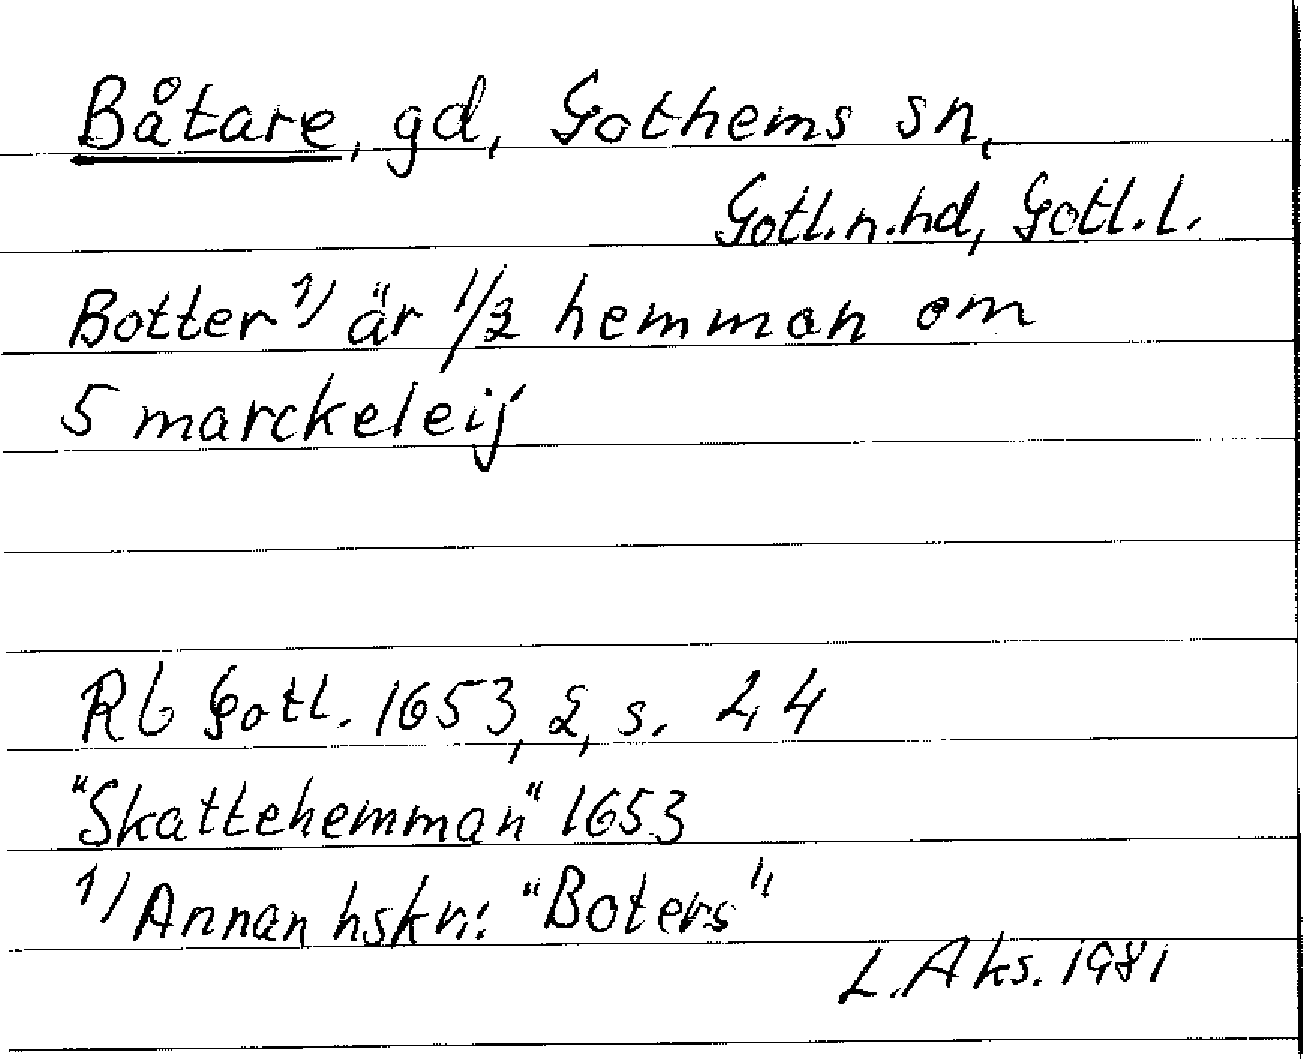 Båtare, gd, Gothems sn,
Gotl.n.hd, Gotl.l.
Botter 1/ är 1/2 hemman om
5 marckeleij
Rb Gotl. 1653, 2, s. 24
"Skattehemman" 1653
1/ Annan hskr: "Boters"
L. Aks. 1981